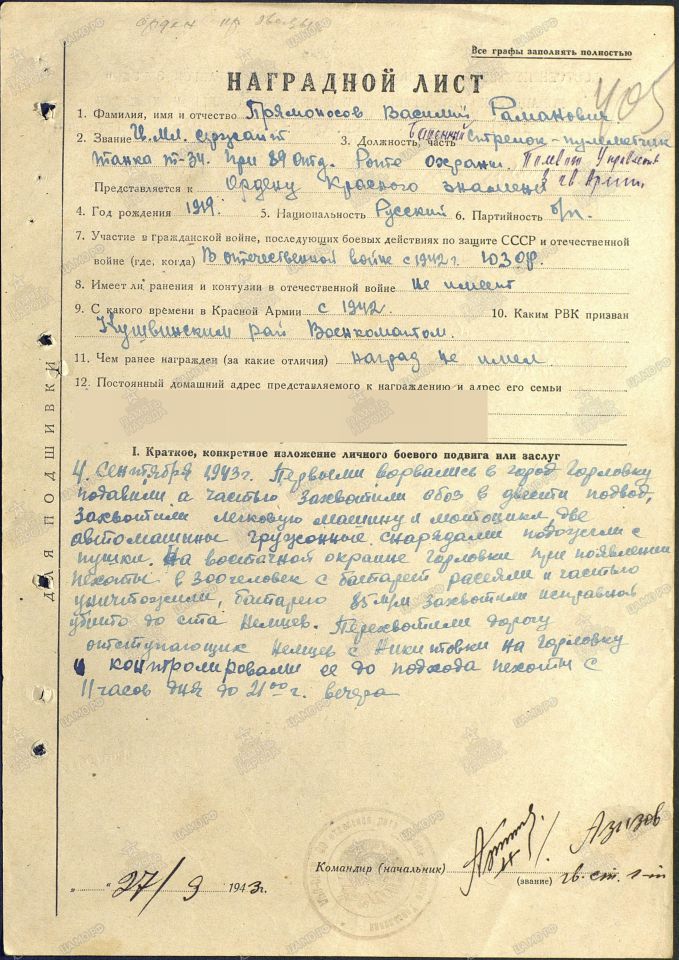 орден кр звезды
Все графы заполнять полностью
НАГРАДНОЙ ЛИСТ
405
1. Фамилия, имя и отчество Прямоносов Василий Раманович
2. Звание Гв. Мл. сержант 3. Должность, часть башенный стрелок-пулеметчик
танка т-34. при 89 отд. Роте охраны. Полевого Управления
3 гв. Армии.
Представляется к Ордену Красного знамени
4. Год рождения 1919г. 5. Национальность Русский 6. Партийность б/п.
7. Участие в гражданской войне, последующих боевых действиях по защите СССР и отечественной
войне (где, когда) В отечественной войне с 1942 г. ЮЗФ.
8. Имеет ли ранения и контузии в отечественной войне Не имеет
9. С какого времени в Красной Армии с 1942 10. Каким РВК призван
Кушвинским рай Военкоматом.
11. Чем ранее награжден (за какие отличия) наград не имел
12. Постоянный домашний адрес представляемого к награждению и адрес его семьи
ДЛЯ ПОДШИВКИ
I. Краткое, конкретное изложение личного боевого подвига или заслуг
4. Сентября 1943г. Первыми ворвались в город Горловку
подавили а частью захватили обоз в двести подвод,
захватили легковую машину и мотоцикл, две
автомашины груженные снарядами подожгли с
пушки. На восточной окраине Горловки при появлении
пехоты в 300 человек с батареей расеяли и частью
уничтожили, батарею 85 м/м захватили исправной
убито до ста Немцев. Перехватили дорогу
отступающих Немцев с Никитовки на Горловку
и контролировали ее до подхода пехоты с
11 часов дня до 21 00 г. вечера
Командир (начальник) Азизов
(звание) гв. ст. л-т
„27/9 1943г.